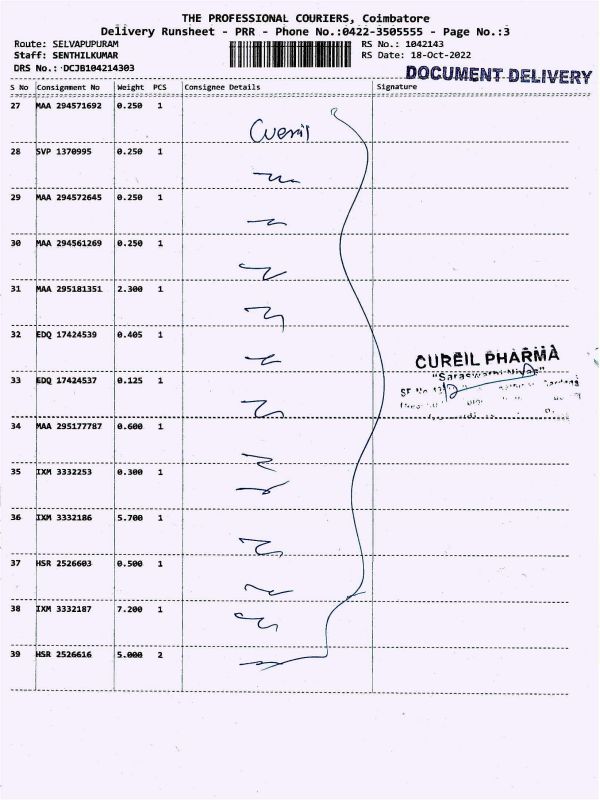 THE PROFESSIONAL COURIERS, Coimbatore
Delivery Runsheet - PRR - Phone No.:0422-3505555 - Page No.:3
Route: SELVAPUPURAM
RS No.: 1042143
Staff: SENTHILKUMAR
RS Date: 18-Oct-2022
DRS No.: DCJB104214303
DOCUMENT DELIVERY
S No Consignment No Weight PCS Consignee Details Signature
27 MAA 294571692 0.250 1
28 SVP 1370995 0.250 1
29 MAA 294572645 0.250 1
30 MAA 294561269 0.250 1
31 MAA 295181351 2.300 1
32 EDQ 17424539 0.405 1
CUREIL PHARMA
33 EDQ 17424537 0.125 1
34 MAA 295177787 0.600 1
35 IXM 3332253 0.300 1
36 IXM 3332186 5.700 1
37 HSR 2526603 0.500 1
38 IXM 3332187 7.200 1
39 HSR 2526616 5.000 2